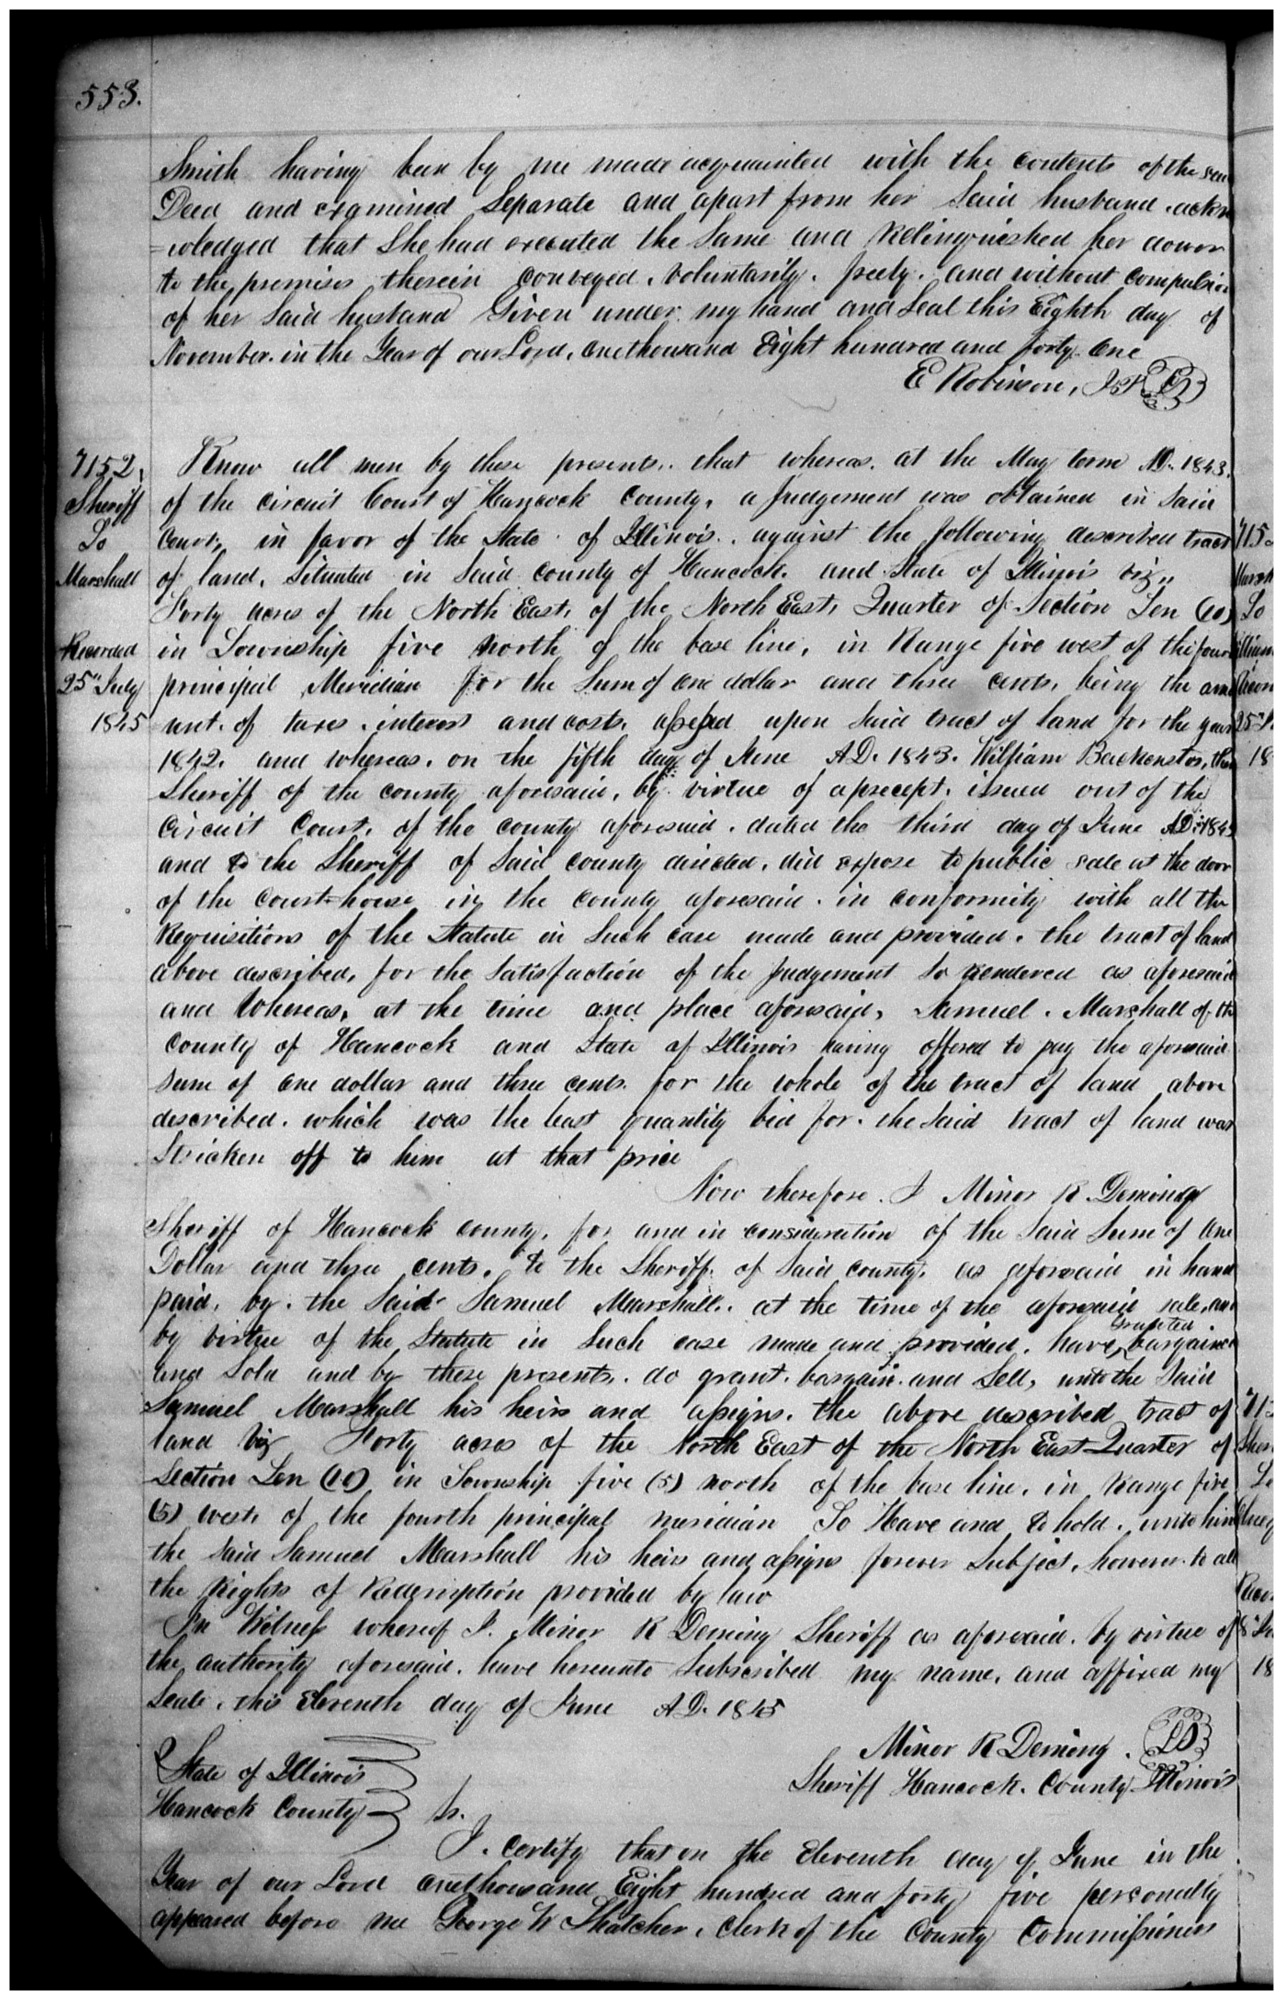 553.
Smith having been by me made acquainted with the contents of the
Deed and examined Separate and apart from her Said husband. ackn
=owledged that She had executed the Same and Relinquished her dower
to the premises therein conveyed. Voluntarily. freely. and without compulsion
of her Said husband Given under my hand and Seal this Eighth day of
November. in the Year of our Lord, one thousand Eight hundred and forty One
E Robinson, J.P. LS
7152,
Sheriff
To
Marshall
Recorded
25" July
1845
Know all men by these presents. that whereas. at the May term AD. 1843.
of the circuit Court of Hancock County, a Judgement was obtained in Said
Court, in favor of the State of Illinois. against the following described tract
of land, Situated in Said County of Hancock. and State of Illinois viz,,
Forty acres of the North East, of the North East, Quarter of Section Ten (10)
in Township five North of the base line, in Range five west of the fourth
principal Meridian for the Sum of One dollar and three cents, being the amo
unt. of taxes. interest and costs, assessed upon Said tract of land for the year
1842. and whereas. on the fifth day of June AD. 1843. William Backenstos, then
Sheriff of the county aforesaid, by virtue of a precept. issued out of the
Circuit Court. of the county aforesaid. dated the third day of June AD. 1843
and to the Sheriff of Said County directed, did expose to public sale at the door
of the Court-house in the County aforesaid. in conformity with all the
Requisitions of the Statute in Such case made and provided. the tract of land
above described, for the Satisfaction of the Judgement So rendered as aforesaid
and Whereas, at the time and place aforesaid, Samuel. Marshall of the
County of Hancock and State of Illinois having offered to pay the aforesaid
Sum of one dollar and three cents. for the whole of the tract of land above
described. which was the least quantity bid for. the Said tract of land was
Stricken off to him at that price
Now therefore. I Minor R. Deming
Sheriff of Hancock County, for and in consideration of the Said Sum of One
Dollar and three cents. to the Sheriff. of Said County. as aforesaid in hand
paid, by. the Said Samuel Marshall. at the time of the aforesaid sale, and
by virtue of the Statute in Such case made and provided. have granted bargained
and Sold and by these presents. do grant. bargain. and Sell, unto the Said
Samuel Marshall his heirs and assigns. the above described tract of
land Viz Forty acres of the North East of the North East Quarter of
Section Ten (10) in Township five (5) north of the base line. in Range five
(5) west, of the fourth principal meridian To Have and to hold. unto him
the Said Samuel Marshall his heirs and assigns forever Subject, however. to all
the Rights of Redemption provided by law
In Witness whereof I. Minor R Deming Sheriff as aforesaid. by virtue of
the authority aforesaid. have hereunto Subscribed my name. and affixed my
Seal. this Eleventh day of June AD. 1845
Minor R Deming. LS
Sheriff Hancock. County Illinois
State of Illinois
Hancock County Ss.
I. Certify that on the Eleventh day of June in the
Year of our Lord one thousand Eight hundred and forty five personally
appeared before me George W Thatcher. Clerk of the County Commissioners